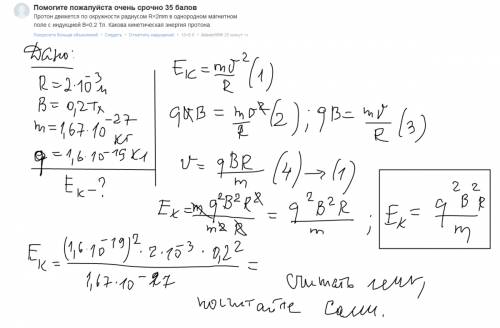 Помогите пожалуйста очень срочно 35 балов
Протон движется по окружности радиусом R=2mm в однородном магнитном
поле с индукцией B=0.2 Тл. Какова кинетическая энергия протона
Дано:
R = 2·10⁻³ м
B = 0,2 Тл
m = 1,67·10⁻²⁷ кг
q = 1,6·10⁻¹⁹ Кл
Eк - ?
Eк = mv²/R (1)
qvB = mv²/R (2); qB = mv/R (3)
v = qBR/m (4) → (1)
Eк = m q²B²R²/m²R = q²B²R/m ; Eк = q²B²R/m
Eк = (1,6·10⁻¹⁹)²·2·10⁻³·0,2²/1,67·10⁻²⁷ =
считать лень,
посчитайте сами.